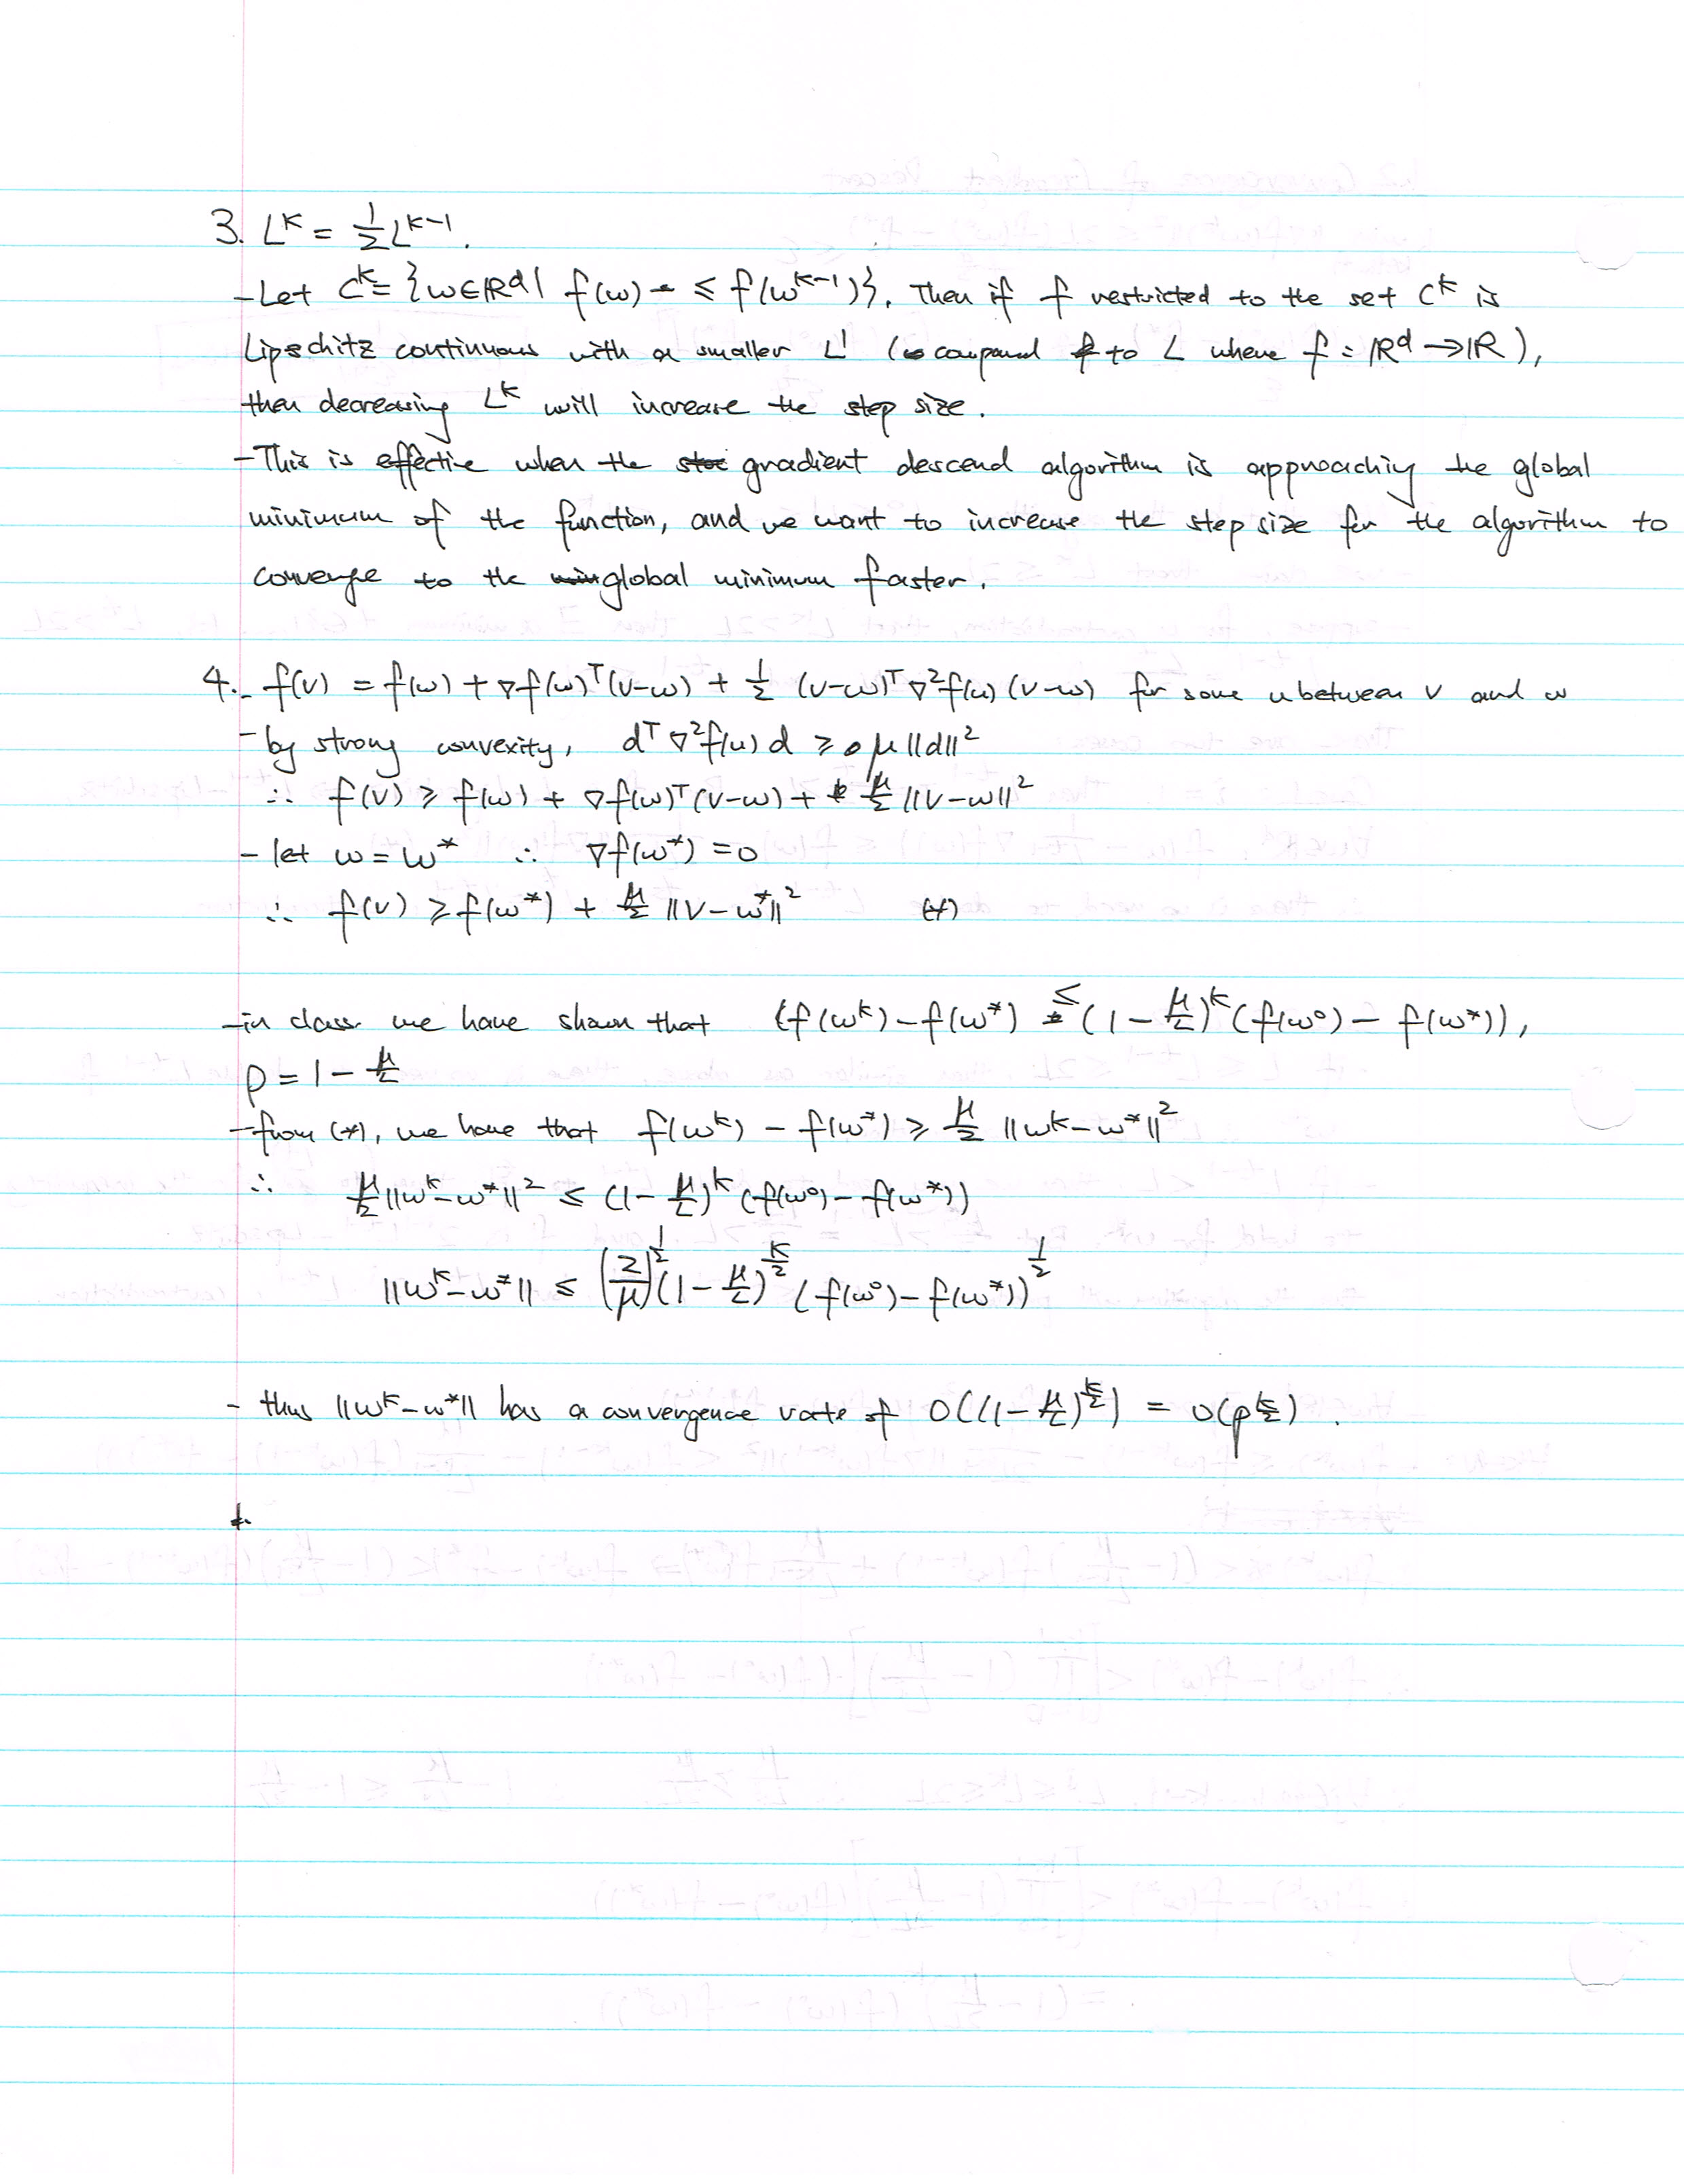 3. L^k = 1/2 L^{k-1}.
- Let C^k = {w ∈ ℝ^d | f(w) ≤ f(w^{k-1})}. Then if f restricted to the set C^k is
Lipschitz continuous with a smaller L' (compared to L where f: ℝ^d → ℝ),
then decreasing L^k will increase the step size.
- This is effective when the gradient descend algorithm is approaching the global
minimum of the function, and we want to increase the step size for the algorithm to
converge to the global minimum faster.
4. - f(v) = f(w) + ∇f(w)^T(v-w) + 1/2 (v-w)^T ∇²f(u) (v-w) for some u between v and w
- by strong convexity, d^T ∇²f(u) d ≥ μ ||d||²
∴ f(v) ≥ f(w) + ∇f(w)^T(v-w) + μ/2 ||v-w||²
- let w = w* ∴ ∇f(w*) = 0
∴ f(v) ≥ f(w*) + μ/2 ||v-w*||² (*)
- in class we have shown that (f(w^k) - f(w*) ≤ (1 - μ/L)^k (f(w^0) - f(w*)),
ρ = 1 - μ/L
- from (*), we have that f(w^k) - f(w*) ≥ μ/2 ||w^k - w*||²
∴ μ/2 ||w^k - w*||² ≤ (1 - μ/L)^k (f(w^0) - f(w*))
||w^k - w*|| ≤ (2/μ)^{1/2} (1 - μ/L)^{k/2} (f(w^0) - f(w*))^{1/2}
- thus ||w^k - w*|| has a convergence rate of O((1 - μ/L)^{k/2}) = O(ρ^{k/2}).